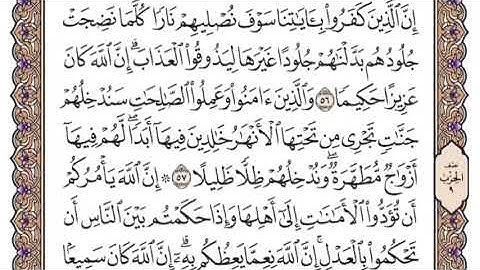 إِنَّ ٱلَّذِينَ كَفَرُوا۟ بِـَٔايَـٰتِنَا سَوْفَ نُصْلِيهِمْ نَارًا كُلَّمَا نَضِجَتْ
جُلُودُهُم بَدَّلْنَـٰهُمْ جُلُودًا غَيْرَهَا لِيَذُوقُوا۟ ٱلْعَذَابَ ۗ إِنَّ ٱللَّهَ كَانَ
عَزِيزًا حَكِيمًا ٥٦ وَٱلَّذِينَ ءَامَنُوا۟ وَعَمِلُوا۟ ٱلصَّـٰلِحَـٰتِ سَنُدْخِلُهُمْ
جَنَّـٰتٍ تَجْرِى مِن تَحْتِهَا ٱلْأَنْهَـٰرُ خَـٰلِدِينَ فِيهَآ أَبَدًا ۖ لَّهُمْ فِيهَآ
أَزْوَٰجٌ مُّطَهَّرَةٌ ۖ وَنُدْخِلُهُمْ ظِلًّا ظَلِيلًا ٥٧ ۞ إِنَّ ٱللَّهَ يَأْمُرُكُمْ
أَن تُؤَدُّوا۟ ٱلْأَمَـٰنَـٰتِ إِلَىٰٓ أَهْلِهَا وَإِذَا حَكَمْتُم بَيْنَ ٱلنَّاسِ أَن
تَحْكُمُوا۟ بِٱلْعَدْلِ ۚ إِنَّ ٱللَّهَ نِعِمَّا يَعِظُكُم بِهِۦٓ ۗ إِنَّ ٱللَّهَ كَانَ سَمِيعًۢا
نصف
الحزب
٩